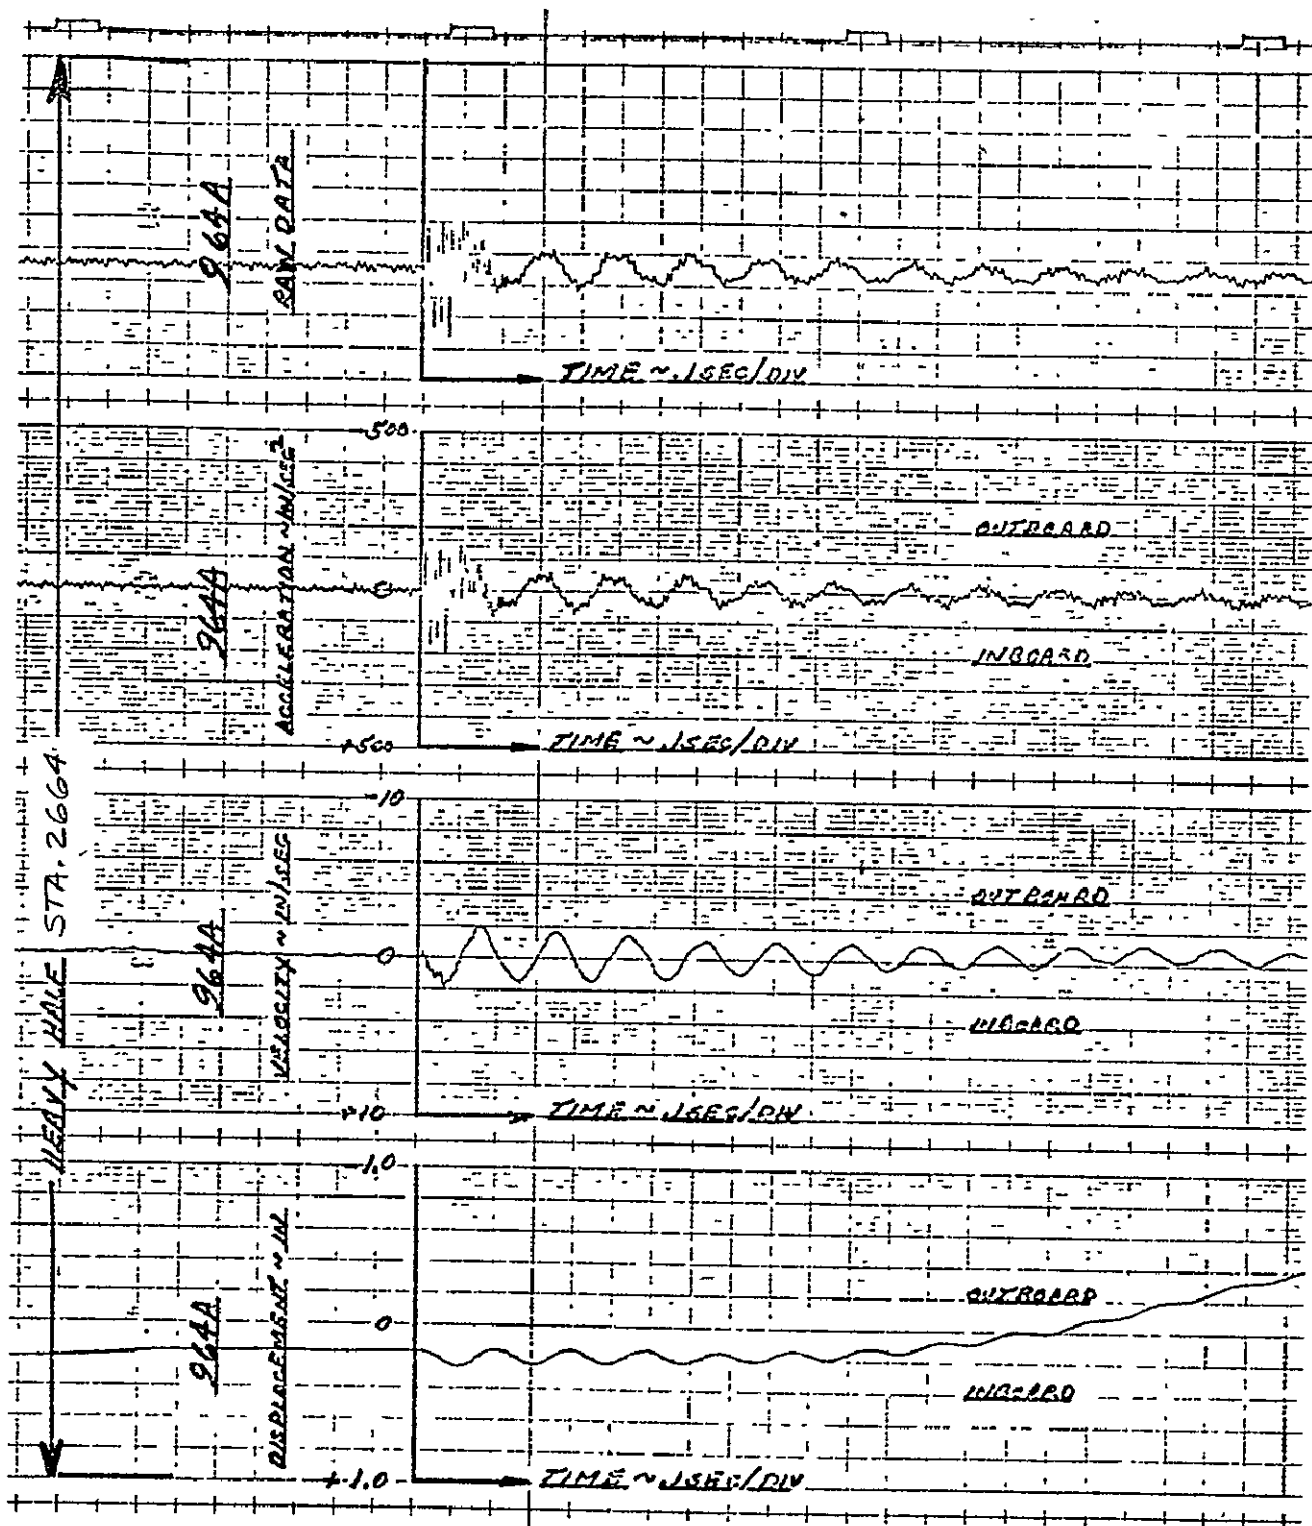 HEAVY HALE STA. 2664
964A
RAW DATA
TIME ~ .1SEC/DIV
-500
964A
ACCELERATION ~ IN/SEC²
0
OUTBOARD
INBOARD
+500
TIME ~ .1SEC/DIV
-10
964A
VELOCITY ~ IN/SEC
0
OUTBOARD
INBOARD
+10
TIME ~ .1SEC/DIV
-1.0
964A
DISPLACEMENT ~ IN
0
OUTBOARD
INBOARD
+1.0
TIME ~ .1SEC/DIV